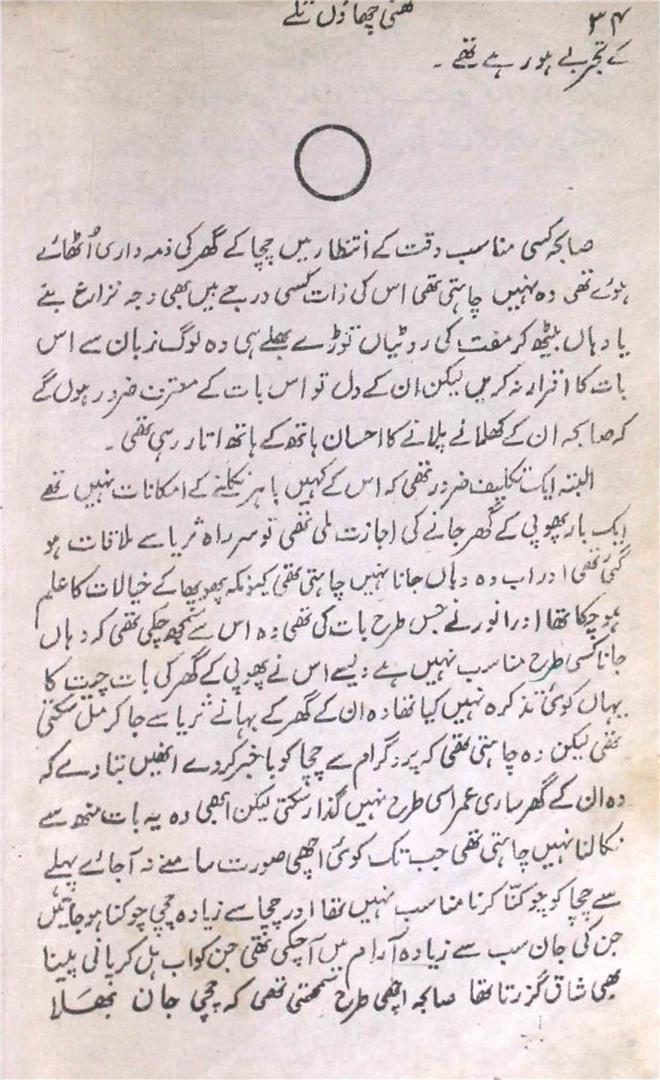 گھنی چھاؤں تلے ۳۴
کے تجربے ہو رہے تھے۔
صابحہ کسی مناسب وقت کے انتظار میں چچا کے گھر کی ذمہ داری اُٹھائے
ہوئے تھی وہ نہیں چاہتی تھی اس کی ذات کسی درجے میں بھی وجہ نزاع بنے
یا وہاں بیٹھ کر مفت کی روٹیاں توڑے بھلے ہی وہ لوگ زبان سے اس
بات کا اقرار نہ کریں لیکن ان کے دل تو اس بات کے معترف ضرور ہوں گے
کہ صابحہ ان کے کھلانے پلانے کا احسان ہاتھ کے ہاتھ اتار رہی تھی۔
البتہ ایک تکلیف ضرور تھی کہ اس کے کہیں باہر نکلنے کے امکانات نہیں تھے
ایک بار پھوپی کے گھر جانے کی اجازت ملی تھی تو سر راہ ثریا سے ملاقات ہو
گئی تھی اور اب وہ وہاں جانا نہیں چاہتی تھی کیونکہ پھوپھا کے خیالات کا علم
ہو چکا تھا اور انور نے جس طرح بات کی تھی وہ اس سے سمجھ چکی تھی کہ وہاں
جانا کسی طرح مناسب نہیں ہے ویسے اس نے پھوپی کے گھر کی بات چیت کا
یہاں کوئی تذکرہ نہیں کیا تھا وہ ان کے گھر کے بہانے ثریا سے جا کر مل سکتی
تھی لیکن وہ چاہتی تھی کہ پروگرام سے چچا کو باخبر کر دے انھیں بتا دے کہ
وہ ان کے گھر ساری عمر اسی طرح نہیں گذار سکتی لیکن ابھی وہ یہ بات منھ سے
نکالنا نہیں چاہتی تھی جب تک کوئی اچھی صورت سامنے نہ آجائے پہلے
سے چچا کو چوکنّا کرنا مناسب نہیں تھا اور چچا سے زیادہ چچی چوکنا ہو جاتیں
جن کی جان سب سے زیادہ آرام میں آ چکی تھی جن کو اب ہل کر پانی پینا
بھی شاق گزرتا تھا صابحہ اچھی طرح سمجھتی تھی کہ چچی جان بھلا